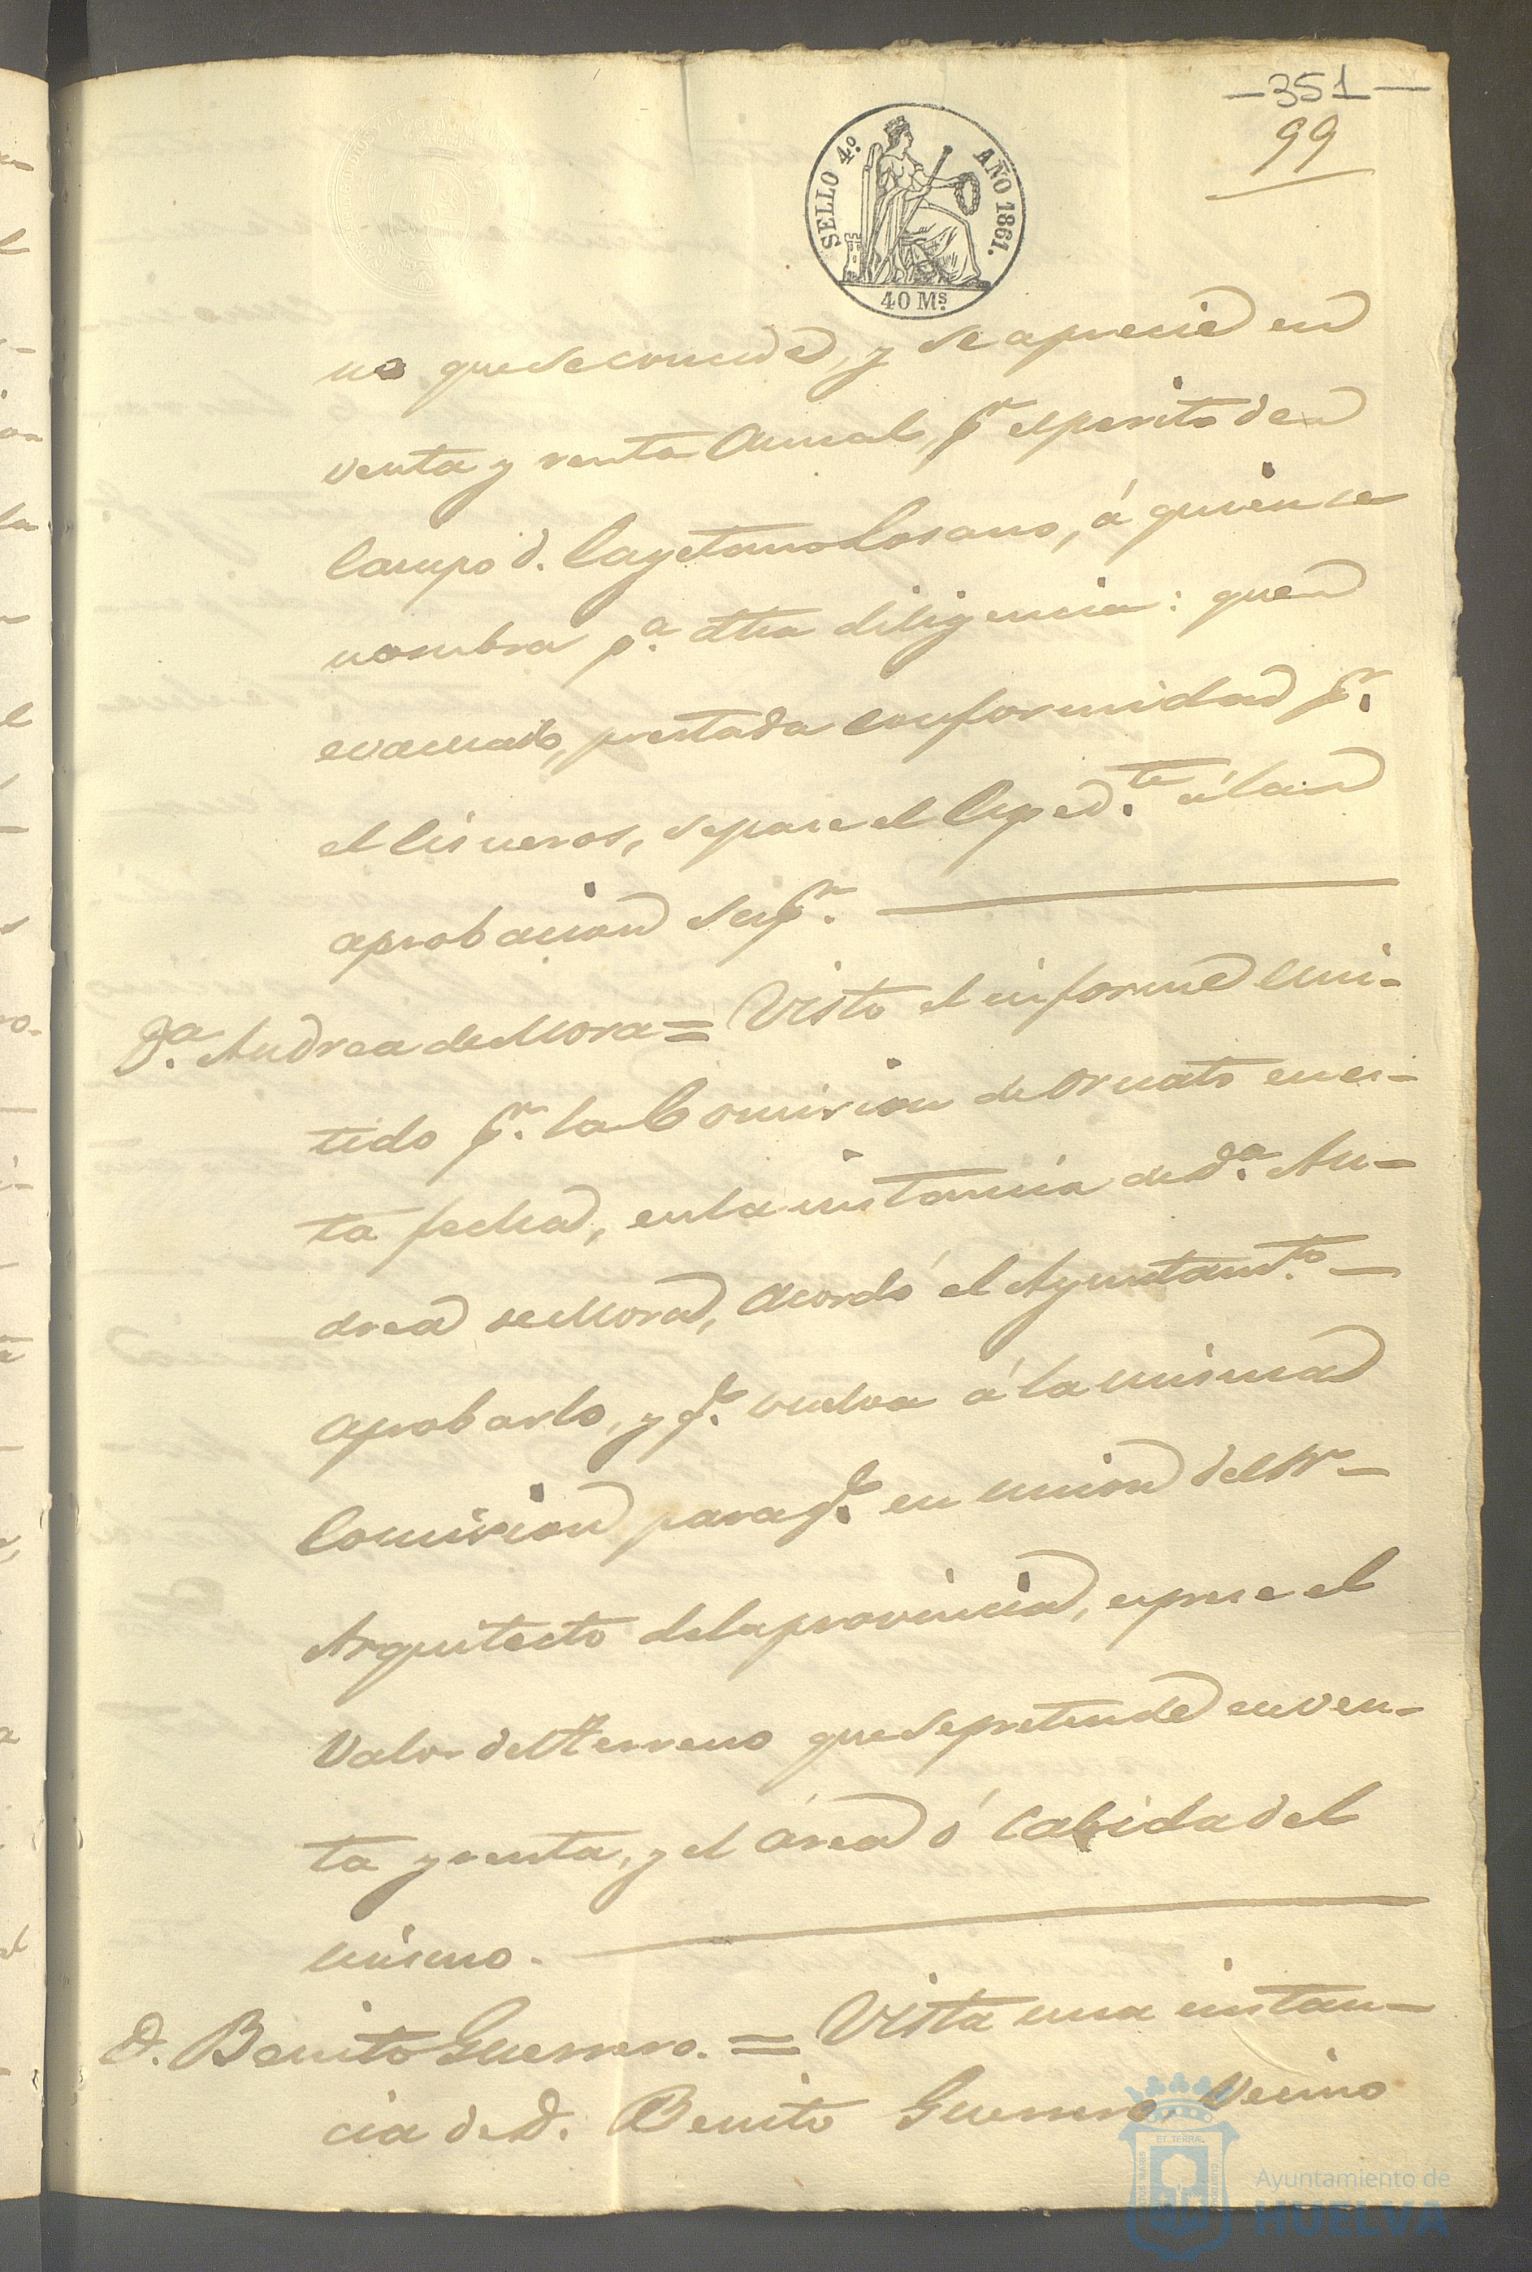 —351—
99
SELLO 4.º AÑO 1861.
40 Ms.
no que se concede, y se aprecie en
venta y renta anual, pr el perito de
Campo d. Cayetano Losano, á quien se
nombra pa. dha diligencia: que
evacuado, prestada conformidad pr.
el Cisneros, se pase el Exped.te á la
aprobacion Supr.
Da. Andrea de Mora = Visto el informe emi-
tido pr. la Comision de Ornato en es-
ta fecha, en la instancia de Da. An-
drea de Mora, acordó el Ayuntamto.
aprobarlo, y qe. vuelva á la misma
Comision para qe. en union del Sr.
Arquitecto de la provincia, exprese el
Valor del terreno que se pretende en ven-
ta y renta, y el área ó cabida del
mismo.
D. Benito Guerrero. = Vista una instan-
cia de D. Benito Guerrero, Vecino
Ayuntamiento de
HUELVA